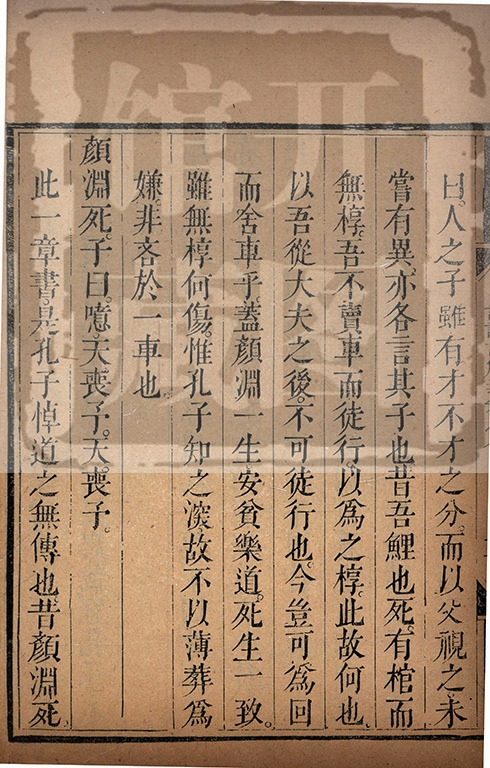 曰。人之子雖有才不才之分。而以父視之。未
嘗有異。亦各言其子也。昔吾鯉也死。有棺而
無椁。吾不賣車而徒行。以為之椁。此故何也。
以吾從大夫之後。不可徒行也。今豈可為回
而舍車乎。蓋顏淵一生安貧樂道。死生一致。
雖無椁何傷。惟孔子知之深。故不以薄葬為
嫌。非吝於一車也。
顏淵死。子曰。噫。天喪予。天喪予。
此一章書。是孔子悼道之無傳也。昔顏淵死